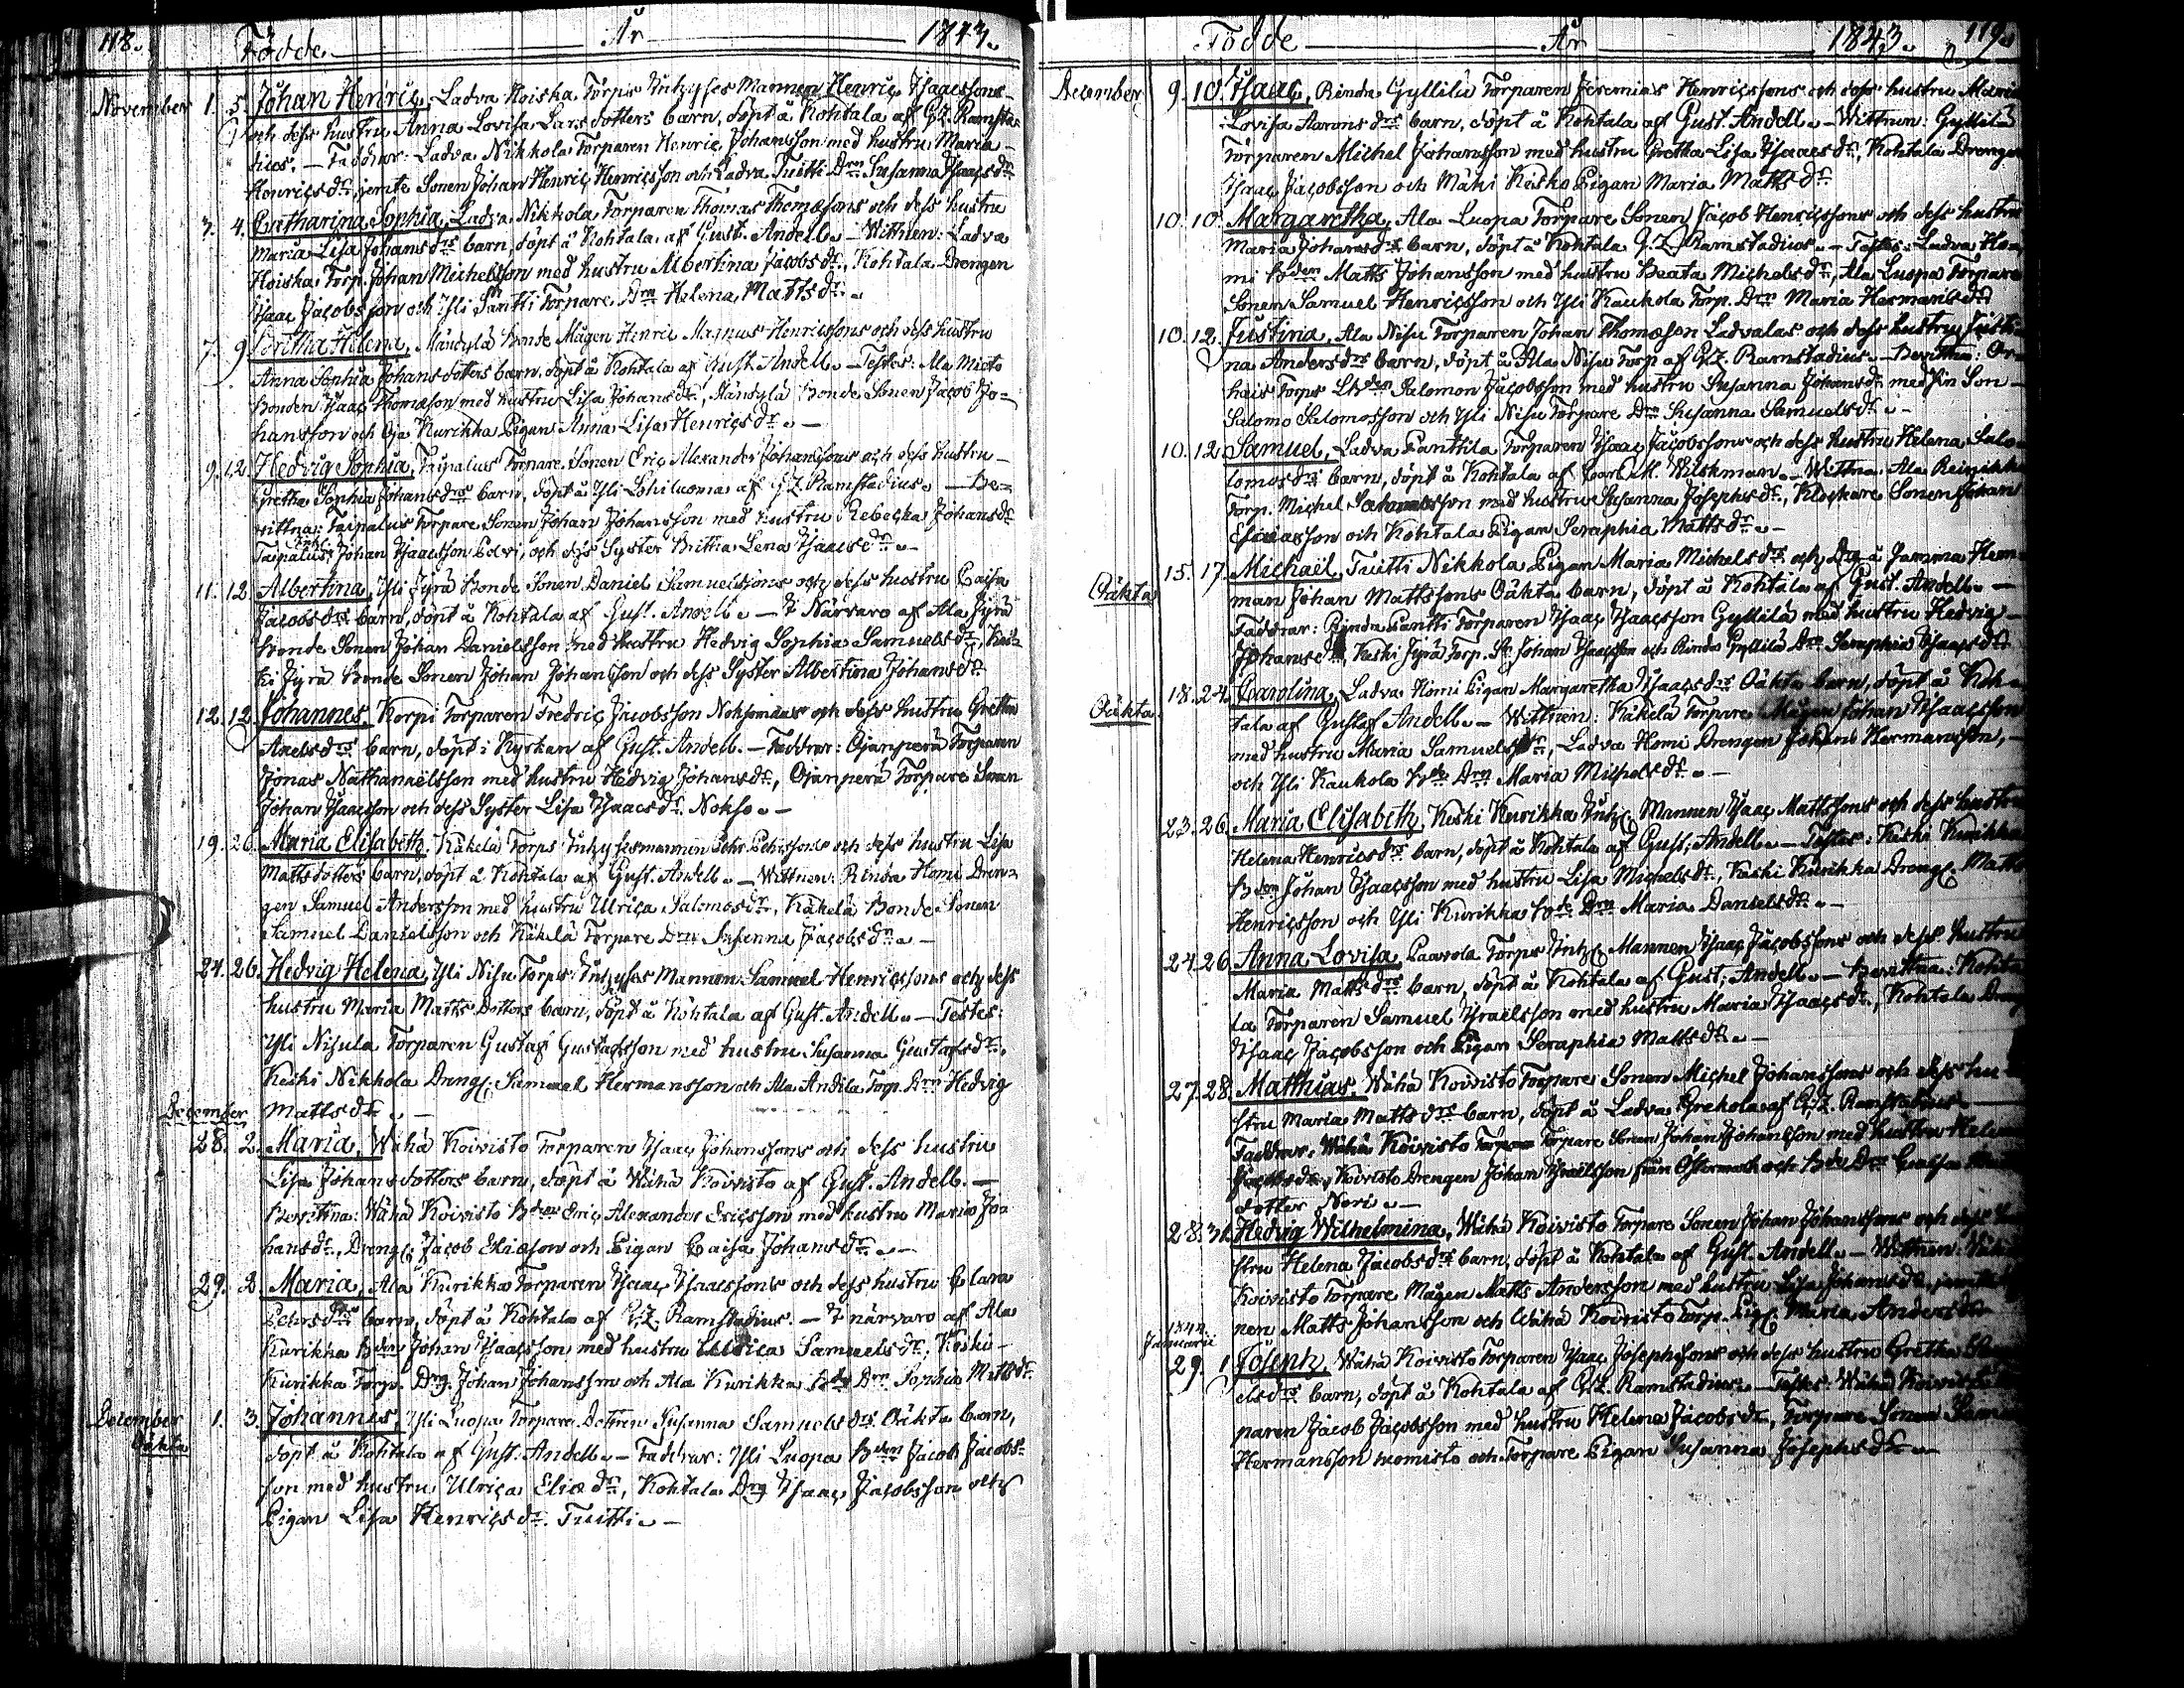 118. Födde År 1843.
November 1. 5. Johan Henric, Ladva Hoiska Torps Inhyses Mannen Henric Isaacssons
och dess hustru Anna Lovisa Lars dotters barn, döpt å Kohtala af G. Z. Ramsta-
dius. — Faddrar: Ladva Nikkola Torparen Henric Johansson med hustru Maria
Henricsdr, jemte Sonen Johan Henric Henricsson och Ladva Tuitti Drn Susanna Isaacsdr
3. 4. Catharina Sophia, Ladva Nikkola Torparen Thomas Thomæsons och dess hustru
Maria Lisa Johansdrs barn, döpt å Kohtala af Gust. Andell. — Wittnen: Ladva
Hoiska Torp. Johan Michelsson med hustru Albertina Jacobsdr, Kohtala Drengen
Isaac Jacobsson och Yli Säntti Torpare Drn Helena Mattsdr. —
7. 9 Greta Helena, Mäntylä Bonde Mågen Henric Magnus Henricssons och dess hustru
Anna Sophia Johans doters barn, döpt å Kohtala af Gust. Andell. — Testes: Ala Mieto
Bonden Isaac Thomæson med hustru Lisa Johansdr, Mäntylä Bonde Sonen Jacob Jo-
hansson och Oja Kurikka Pigan Anna Lisa Henricsdr. —
9. 12. Hedvig Sophia, Taipalus Torpare Sonen Eric Alexander Johanssons och dess hustru
Gretha Sophia Johansdrs barn, döpt å Yli Lohiluoma af G. Z. Ramstadius. — Be-
vittna: Taipalus Torpare Sonen Johan Johansson med hustru Rebecka Johansdr
Taipalus Johan Isaacsson Polvi, och dess Syster Britta Lena Isaacsdr. —
11. 12. Albertina, Yli Jyrä Bonde Sonen Daniel Samuelssons och dess hustru Caisa
Jacobsdrs barn, döpt å Kohtala af Gust. Andell. — I Närvaro af Ala Jyrä
bonde Sonen Johan Danielsson med hustru Hedvig Sophia Samuelsdr, Kes-
ki Jyrä Bonde Sonen Johan Johansson och dess Syster Albertina Johansdr
12. 12. Johannes, Korpi Torparen Fredric Jacobsson Noksomaas och dess hustru Gretha
Axelsdrs barn, döpt i Kyrkan af Gust. Andell. — Faddrar: Ojanperä Torparen
Jonas Nathanaelsson med hustru Hedvig Johansdr, Ojanperä Torpare Sonen
Johan Isaacsson och dess Syster Lisa Isaacsdr Nokso. —
19. 26. Maria Elisabeth, Käkelä Torps Inhysesmannen Pehr Pehrssons och dess hustru Lisa
Matts dotters barn, döpt å Kohtala af Gust. Andell. — Wittnen: Rinda Homi Dren-
gen Samuel Andersson med hustru Ulrica Salomosdr, Käkelä Bonde Sonen
Samuel Danielsson och Käkelä Torpare Drn Susanna Jacobsdr. —
24. 26. Hedvig Helena, Yli Nisu Torps Inhyses Mannen Samuel Henricssons och dess
hustru Maria Matts Dotters barn, döpt å Kohtala af Gust. Andell. — Testes:
Yli Nisula Torparen Gustaf Gustafsson med hustru Susanna Gustafsdr,
Keski Nikkola Dreng. Samuel Hermansson och Ala Antila Torp. Drn Hedvig
December Mattsdr. —
28. 2. Maria, Wähä Koivisto Torparen Isaac Johanssons och dess hustru
Lisa Johans dotters barn, döpt å Wähä Koivisto af Gust. Andell. —
Bevittna: Wähä Koivisto Bden Eric Alexander Ericsson med hustru Maria Jo-
hansdr, Dreng. Jacob Eliæson och Pigan Caisa Johansdr. —
29. 2. Maria, Ala Kurikka Torparen Isaac Isaacssons och dess hustru Clara
Pehrsdrs barn, döpt å Kohtala af G. Z. Ramstadius. — I närvaro af Ala
Kurikka Bden Johan Isaacsson med hustru Ulrica Samuelsdr, Keski
Kurikka Torp. Drg. Johan Johansson och Ala Kurikka Bde Drn Sophia Mattsdr
December 1. 3. Johannis, Yli Luopa Torpare Dottren Susanna Samuelsdrs Oäkta barn,
Oäkta döpt å Kohtala af Gust. Andell. — Faddrar: Yli Luopa Bden Jacob Jacobs-
son med hustru Ulrica Eliædr, Kohtala Drg Isaac Jacobsson och
Pigan Lisa Henricsdr Tuitti. —
Födde År 1843. 119.
December 9. 10. Isaac, Rinda Gyllilä Torparen Jeremias Henricssons och dess hustru Maria
Lovisa Aarons drs barn, döpt å Kohtala af Gust. Andell. — Wittnen: Gyllilä
Torparen Michel Johansson med hustru Gretha Lisa Isaacsdr, Kohtala Drengen
Isaac Jacobsson och Mäki Keisko Pigan Maria Mattsdr
10. 10. Margaretha, Ala Luopa Torpare Sonen Jacob Henricssons och dess hustru
Maria Johansdrs barn, döpt å Kohtala G. Z. Ramstadius. — Testes: Ladva Ho-
mi Bden Matts Johansson med hustru Beata Michelsdr, Ala Luopa Torpare
Sonen Samuel Henricsson och Yli Kaukola Torp. Drn Maria Hermansdr
10. 12. Justina, Ala Nisu Torparen Johan Thomæson Ladvalas och dess hustru Justi-
na Andersdrs barn, döpt å Ala Nisu Torp af G. Z. Ramstadius. — Bevittna: Or-
hais Torps Salomon Jacobsson med hustru Susanna Johansdr med sin Son
Salomo Salomosson och Yli Nisu Torpare Drn Susanna Samuelsdr. —
10. 12. Samuel, Ladva Panttila Torparen Isaac Jacobssons och dess hustru Helena Salo-
lomosdrs barn, döpt å Kohtala af Carl M. Wilskman. — Wittna: Ala Reinikka
Torp. Michel sson med hustru Susanna Josephsdr, Klockare Sonen Johan
Esaiasson och Kohtala Pigan Seraphia Mattsdr. —
15. 17. Michaël, Tuitti Nikkola Pigan Maria Michelsdrs och Drg å samma Hem-
Oäkta man Johan Mattssons Oäkta barn, döpt å Kohtala af Gust. Andell. —
Faddrar: Rinda Pantti Torparen Isaac Isaacsson Gyllilä med hustru Hedvig
Johansdr, Keski Jyrä Torp. Johan Isaacsson och Rinda Gyllilä Drn Seraphia Isaacsdr
18. 24. Carolina, Ladva Homi Pigan Margaretha Isaacsdrs Oäkta barn, döpt å Koh-
Oäkta tala af Gustaf Andell. — Wittnen: Käkelä Torpare Mågen Johan Isaacsson
med hustru Maria Samuelsdr, Ladva Homi Drengen Johan Hermansson,
och Yli Kaukola Bde Drn Maria Michelsdr. —
23. 26. Maria Elisabeth, Keski Kurikka Inh. Mannen Isaac Mattssons och dess hustru
Helena Henricsdrs barn, döpt å Kohtala af Gust. Andell. — Testes: Keski Kurikka
Bden Johan Isaacsson med hustru Lisa Michelsdr, Keski Kurikka Dreng. Matts
Henricsson och Yli Kurikka Bde Drn Maria Danielsdr. —
24. 26. Anna Lovisa, Paavola Torps Inh. Mannen Isaac Jacobssons och dess hustru
Maria Mattsdrs barn, döpt å Kohtala af Gust. Andell. — Bevittna: Kohta-
la Torparen Samuel Israelsson med hustru Maria Isaacsdr, Kohtala Dreng
Isaac Jacobsson och Pigan Seraphia Mattsdr. —
27. 28. Matthias, Wähä Koivisto Torpare Sonen Michel Johanssons och dess hu-
stru Maria Mattsdrs barn, döpt å Ladva Prekola af G. Z. Ramstadius —
Faddrar: Wähä Koivisto Torpare Sonen Johan Johansson med hustru Helena
Jacobsdr, Koivisto Drengen Johan Israelsson från Östermark och Bde Drn Caisa
dotter Nori. —
28. 31. Hedvig Wilhelmina, Wähä Koivisto Torpare Sonen Johan Johanssons och dess hu-
stru Helena Jacobsdrs barn, döpt å Kohtala af Gust. Andell. — Wittnen: Wähä
Koivisto Torpare Mågen Matts Andersson med hustru Lisa Johansdr,
nen Matts Johansson och Wähä Koivisto Torp. Pig. Maria Andersdr
1844 Januarii
29. 1. Joseph, Wähä Koivisto Torparen Isaac Josephssons och dess hustru Gretha
elsdrs barn, döpt å Kohtala af G. Z. Ramstadius. — Testes: Wähä Koivisto
paren Jacob Jacobsson med hustru Helena Jacobsdr, Torpare Sonen
Hermansson Luomisto och Torpare Pigan Susanna Josephsdr. —